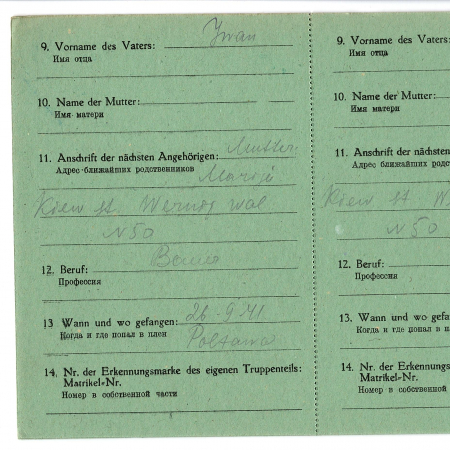 9. Vorname des Vaters: Iwan
Имя отца
10. Name der Mutter:
Имя матери
11. Anschrift der nächsten Angehörigen: Mutter
Адрес ближайших родственников Marija
Kiew st. wal
N 50
12. Beruf:
Профессия
13 Wann und wo gefangen: 26.9.41
Когда и где попал в плен Poltawa
14. Nr. der Erkennungsmarke des eigenen Truppenteils:
Matrikel-Nr.
Номер в собственной части
9. Vorname des Vaters
Имя отца
10. Name der Mutter:
Имя матери
11. Anschrift der nächsten
Адрес ближайших родст
Kiew st. W
N 50
12. Beruf:
Профессия
13. Wann und wo gefa
Когда и где попал в п
14. Nr. der Erkennungs
Matrikel-Nr.
Номер в собственной